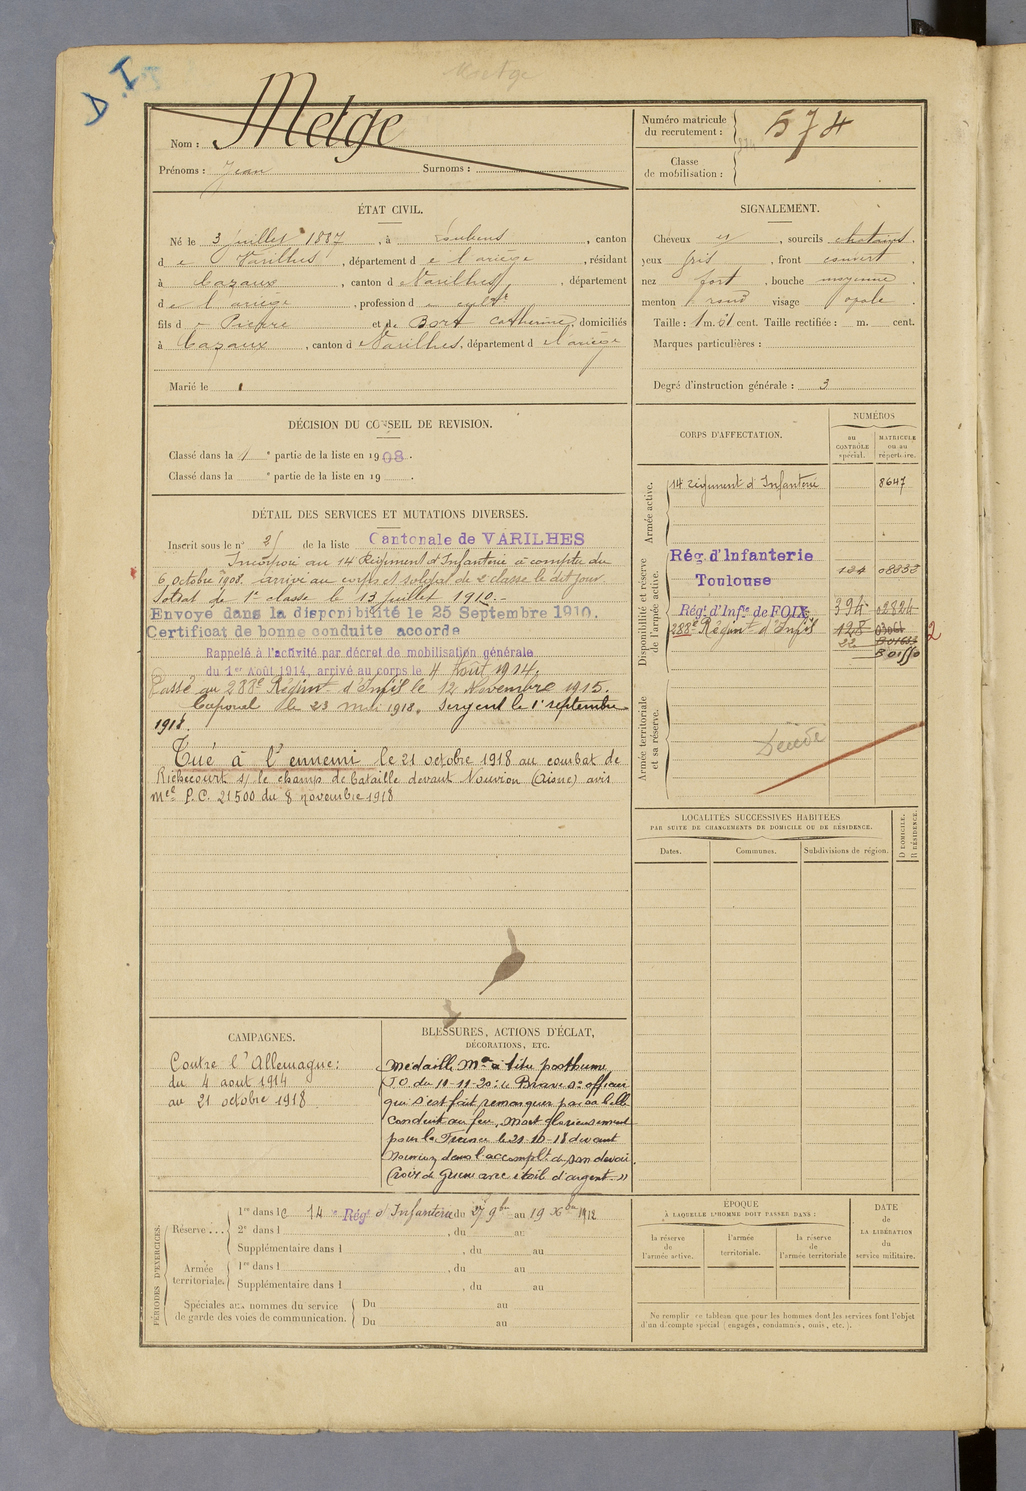 D.I.
Metge
Nom : Metge
Prénoms : Jean Surnoms :
Numéro matricule
du recrutement : 574
Classe
de mobilisation :
ÉTAT CIVIL.
Né le 3 juillet 1887, à Loubens, canton
de Varilhes, département de l'ariège, résidant
à Cazaux, canton de Varilhes, département
de l'ariège, profession de cultr
fils de Pierre et de Bort Catherine, domiciliés
à Cazaux, canton de Varilhes, département de l'ariège
Marié le
SIGNALEMENT.
Cheveux et, sourcils chatains.
yeux gris, front couvert,
nez fort, bouche moyenne,
menton rond visage ovale
Taille : 1 m. 61 cent. Taille rectifiée : m. cent.
Marques particulières :
Degré d'instruction générale : 3
DÉCISION DU CONSEIL DE REVISION.
Classé dans la 1e partie de la liste en 1908.
Classé dans la e partie de la liste en 19 .
DÉTAIL DES SERVICES ET MUTATIONS DIVERSES.
Inscrit sous le n° de la liste Cantonale de VARILHES
Incorporé au 14 Régiment d'Infanterie à compter du
6 octobre 1908. arrivé au corps et soldat de 2e classe le dit jour.
Soldat de 1e classe le 13 juillet 1910.-
Envoyé dans la disponibilité le 25 Septembre 1910.
Certificat de bonne conduite accordé
Rappelé à l'activité par décret de mobilisation générale
du 1er Août 1914, arrivé au corps le 4 Août 1914.
Passé au 288e Régimt d'Infie le 12 Novembre 1915.
Caporal le 23 mai 1918. Sergent le 1er septembre
1918.
Tué à l'ennemi le 21 octobre 1918 au combat de
Richecourt s/ le champ de bataille devant Nouvion (Aisne) avis
mel P.C. 21500 du 8 novembre 1918
CORPS D'AFFECTATION.
NUMÉROS
au
CONTRÔLE
spécial.
MATRICULE
ou au
répertoire.
Armée active.
14 régiment d'Infanterie 8647
Disponibilité et réserve
de l'armée active.
Rég. d'Infanterie
Toulouse 08833
Rég. d'Infie de FOIX 394 02824
288e Régimt d'Infie
22
2
Armée territoriale
et sa réserve.
Décédé
LOCALITÉS SUCCESSIVES HABITÉES
PAR SUITE DE CHANGEMENTS DE DOMICILE OU DE RÉSIDENCE.
Dates.
Communes.
Subdivisions de région.
D DOMICILE.
R RÉSIDENCE.
CAMPAGNES.
Contre l'Allemagne:
du 4 aout 1914
au 21 octobre 1918
BLESSURES, ACTIONS D'ÉCLAT,
DÉCORATIONS, ETC.
Médaille Mre à titre posthume
J.O. du 10-11-20: "Brave s: officier
qui s'est fait remarquer par sa belle
conduite au feu. Mort glorieusement
pour la France le 21-10-18 devant
Nouvion dans l'accomplt de son devoir
Croix de Guerre avec étoile d'argent."
PÉRIODES D'EXERCICES.
Réserve... 1re dans le 14e Régt d'Infanterie du 27 9bre au 19 Xbre 1912
2e dans l , du au
Supplémentaire dans l , du au
Armée
territoriale. 1re dans l , du au
Supplémentaire dans l , du au
Spéciales aux hommes du service
de garde des voies de communication. Du au
Du au
ÉPOQUE
À LAQUELLE L'HOMME DOIT PASSER DANS :
la réserve
de
l'armée active.
l'armée
territoriale.
la réserve
de
l'armée territoriale
DATE
de
LA LIBÉRATION
du
service militaire.
Ne remplir ce tableau que pour les hommes dont les services font l'objet
d'un décompte spécial (engagés, condamnés, omis, etc.).